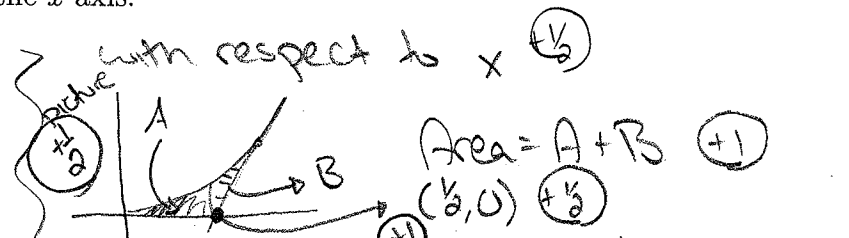 the x axis.
with respect to x +1/2
picture
+1/2
A
B
Area = A + B +1
(1/2, 0) +1/2
+1